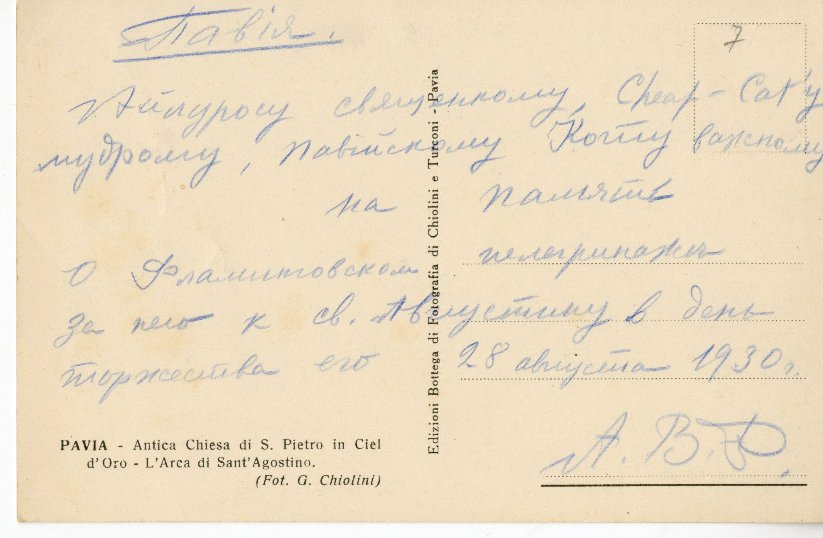 Павiя.
7
Айлуросу священкому, Cheap-Cat'у
мудрому, Павiйскому Коту важному
на память
О Фламинговском пелегринаже
за него к св. Августину в день
торжества его 28 августа 1930 г.
А. В. Р.
PAVIA - Antica Chiesa di S. Pietro in Ciel
d'Oro - L'Arca di Sant'Agostino.
(Fot. G. Chiolini)
Edizioni Bottega di Fotografia di Chiolini e Turconi - Pavia